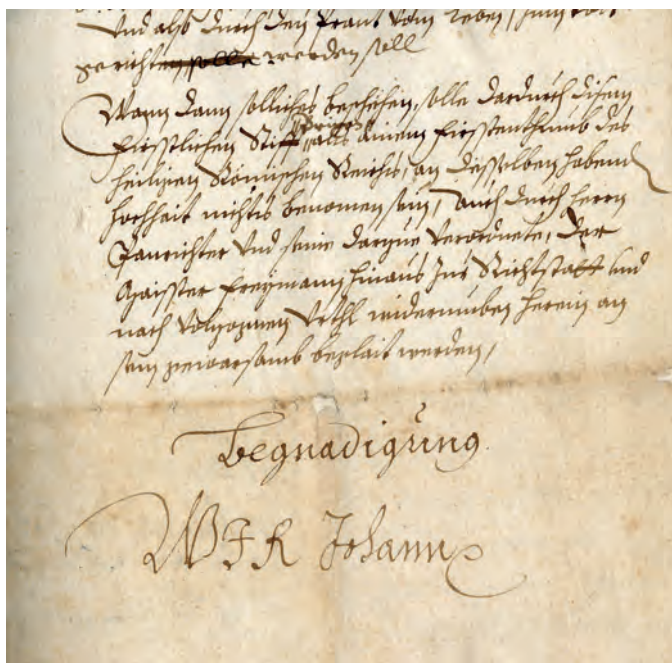 und also durch den  vom Leben, zum
gericht solle werden soll
Wann dann solliches beschehen, solle dardurch disem
Fürstlichen Stifft, alls ainem Fürstenthumb des
heiligen Römischen Reichs, an desselben habend
Hochheit nichts benomen sein, auch durch herrn
Panrichter und seine darzue verordnete, der
Maister Freymann hinaus zur Richtstatt und
nach volzognen Urthl widerumben herein an
sein gewarsamb beglait werden,
Begnadigung
Johann